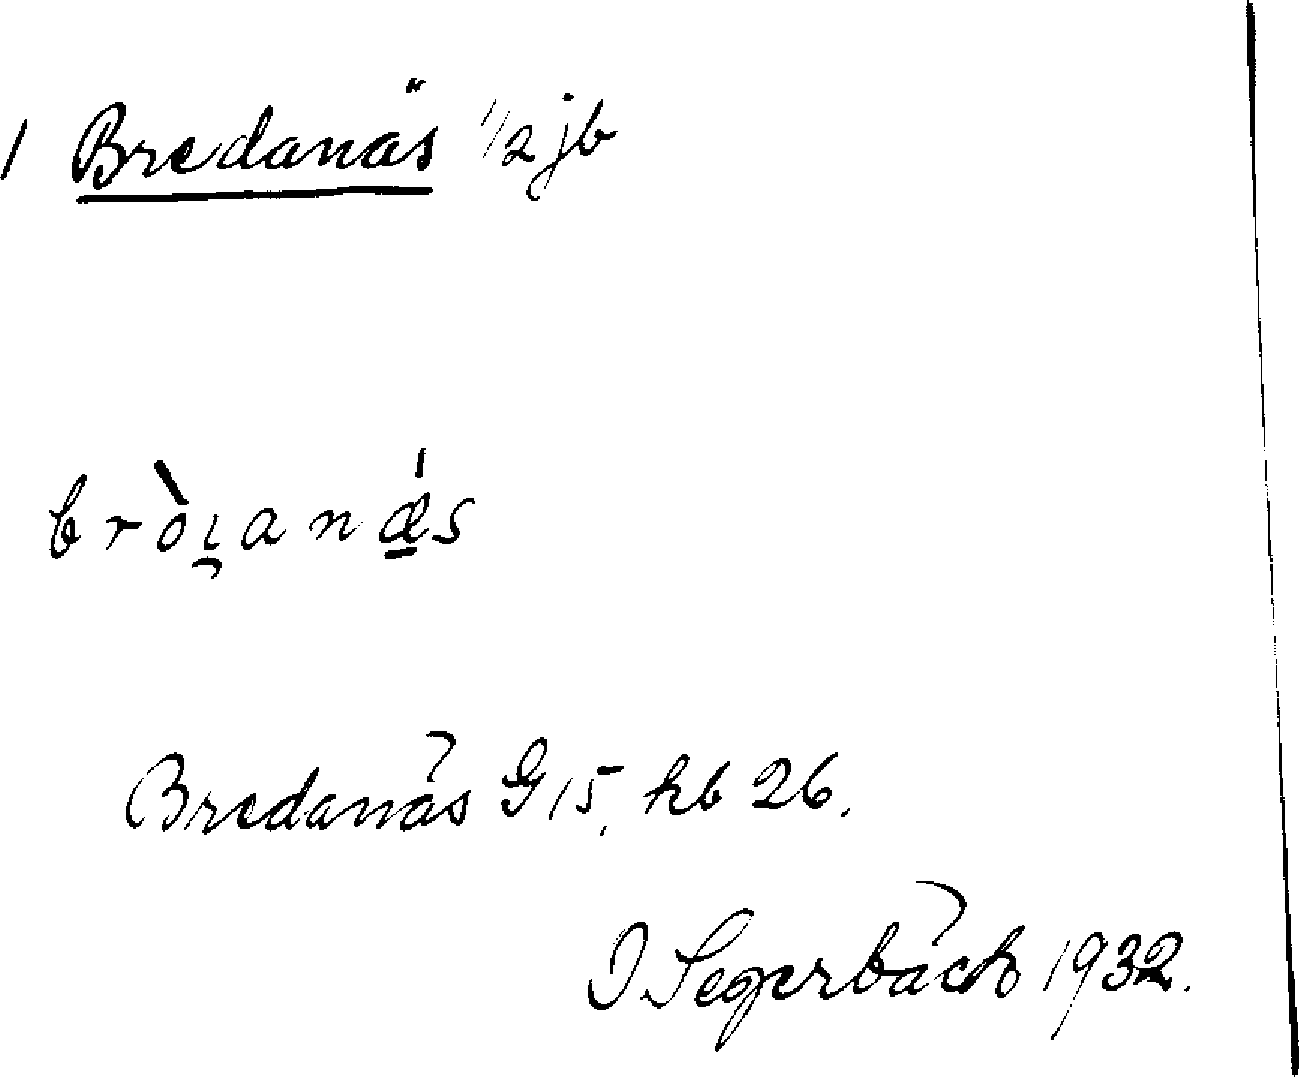 1 Bredanäs 1/2 jb
bròi̯anǽs
Bredanäs G 15, hb 26.
I Segerbäck 1932.